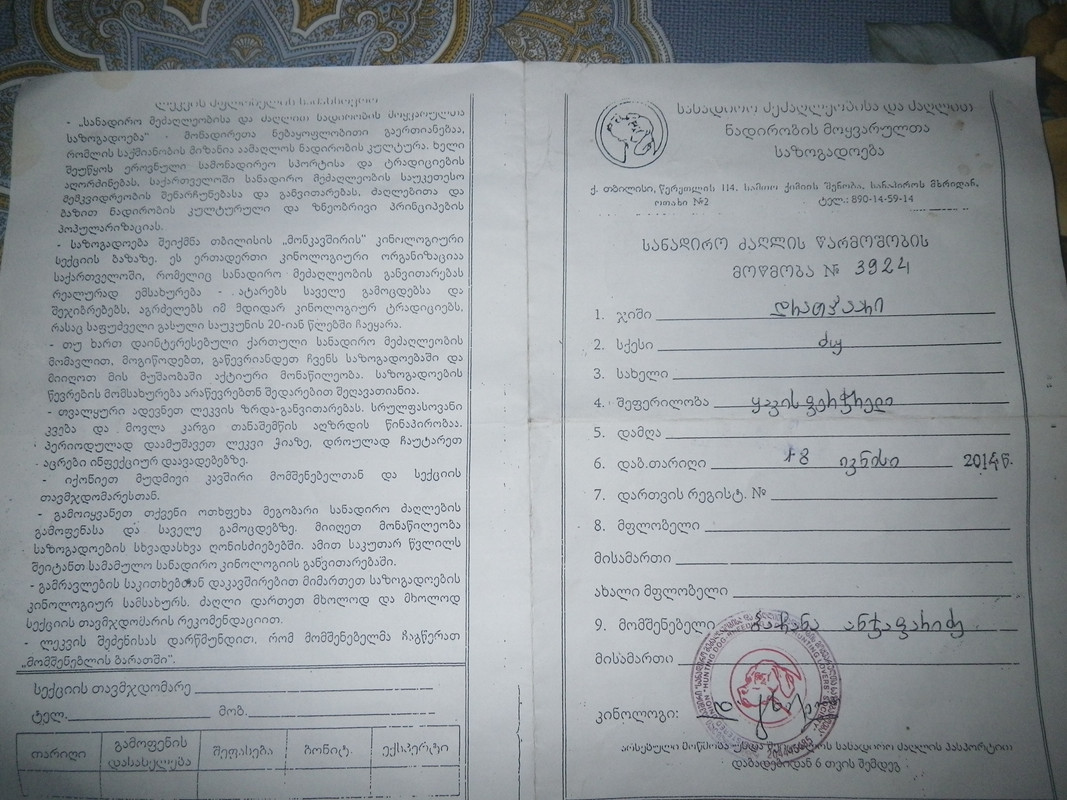 ლეკვის მფლობელის საყურადღებოდ
- „სანადირო მეძაღლეობისა და ძაღლით ნადირობის მოყვარულთა
საზოგადოება“ - მონადირეთა ნებაყოფლობითი გაერთიანებაა,
რომლის საქმიანობის მიზანია აამაღლოს ნადირობის კულტურა, ხელი
შეუწყოს ეროვნული სამონადირეო სპორტისა და ტრადიციების
აღორძინებას, საქართველოში სანადირო მეძაღლეობის საუკეთესო
მემკვიდრეობის შენარჩუნებასა და განვითარებას, ძაღლებითა და
ბაზით ნადირობის კულტურული და ზნეობრივი პრინციპების
პოპულარიზაციას.
- საზოგადოება შეიქმნა თბილისის „მონკავშირის“ კინოლოგიური
სექციის ბაზაზე. ეს ერთადერთი კინოლოგიური ორგანიზაციაა
საქართველოში, რომელიც სანადირო მეძაღლეობის განვითარებას
რეალურად ემსახურება - ატარებს საველე გამოცდებსა და
შეჯიბრებებს, აგრძელებს იმ მდიდარ კინოლოგიურ ტრადიციებს,
რასაც საფუძველი გასული საუკუნის 20-იან წლებში ჩაეყარა.
- თუ ხართ დაინტერესებული ქართული სანადირო მეძაღლეობის
მომავლით, მოგიწოდებთ, გაწევრიანდეთ ჩვენს საზოგადოებაში და
მიიღოთ მის მუშაობაში აქტიური მონაწილეობა. საზოგადოების
წევრების მომსახურება არაწევრებთნ შედარებით შეღავათიანია.
- თვალყური ადევნეთ ლეკვის ზრდა-განვითარებას. სრულფასოვანი
კვება და მოვლა კარგი თანაშემწის აღზრდის წინაპირობაა.
პერიოდულად დაამუშავეთ ლეკვი ჭიაზე, დროულად ჩაუტარეთ
აცრები ინფექციურ დაავადებებზე.
- იქონიეთ მუდმივი კავშირი მომშენებელთან და სექციის
თავმჯდომარესთან.
- გამოიყვანეთ თქვენი ოთხფეხა მეგობარი სანადირო ძაღლების
გამოფენასა და საველე გამოცდებზე. მიიღეთ მონაწილეობა
საზოგადოების სხვადასხვა ღონისძიებებში. ამით საკუთარ წვლილს
შეიტანთ სამამულო სანადირო კინოლოგიის განვითარებაში.
- გამრავლების საკითხებთან დაკავშირებით მიმართეთ საზოგადოების
კინოლოგიურ სამსახურს. ძაღლი დართეთ მხოლოდ და მხოლოდ
სექციის თავმჯდომარის რეკომენდაციით.
- ლეკვის შეძენისას დარწმუნდით, რომ მომშენებელმა ჩაგწერათ
„მომშენებლის ბარათში“.
სექციის თავმჯდომარე
ტელ. მობ.
თარიღი გამოფენის დასახელება შეფასება ბონიტ. ექსპერტი
სანადირო მეძაღლეობისა და ძაღლით
ნადირობის მოყვარულთა
საზოგადოება
ქ. თბილისი, წერეთლის 114. სამთო ქიმიის შენობა, სანაპიროს მხრიდან,
ოთახი №2 ტელ.: 890-14-59-14
სანადირო ძაღლის წარმოშობის
მოწმობა № 3924
1. ჯიში დრათჰაარი
2. სქესი ძუ
3. სახელი
4. შეფერილობა ყავისფერჭრელი
5. დამღა
6. დაბ.თარიღი 18 ივნისი 2014 წ.
7. დართვის რეგისტ. №
8. მფლობელი
მისამართი
ახალი მფლობელი
9. მომშენებელი ანჯაფარიძე
მისამართი
კინოლოგი:
სანადირო ძაღლის პასპორტით
დაბადებიდან 6 თვის შემდეგ